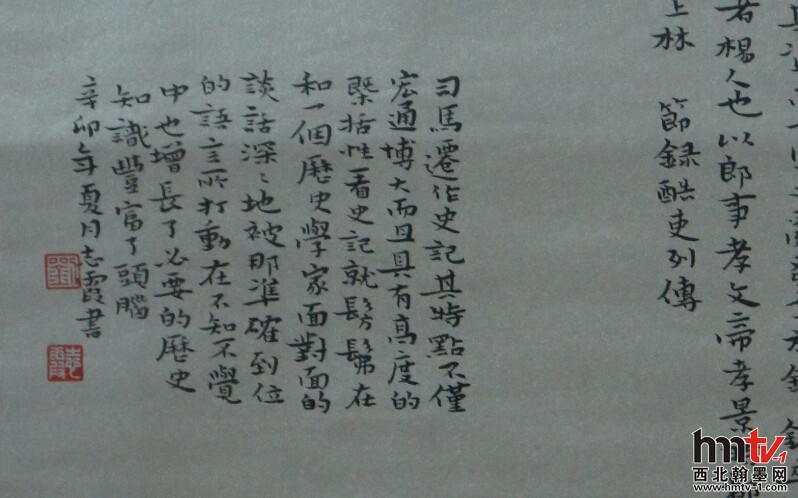 者楊人也以郎事孝文帝孝景
上林 節録酷吏列傳
司馬遷作史記其特點不僅
宏通博大而且具有高度的
槩括性看史記就髣髴在
和一個歷史學家面對面的
談話深深地被那準確到位
的語言所打動在不知不覺
中也增長了必要的歷史
知識豐富了頭腦
辛卯年夏月志霞書
劉
志霞
hmtv-1
西北翰墨网
www.hmtv-1.com